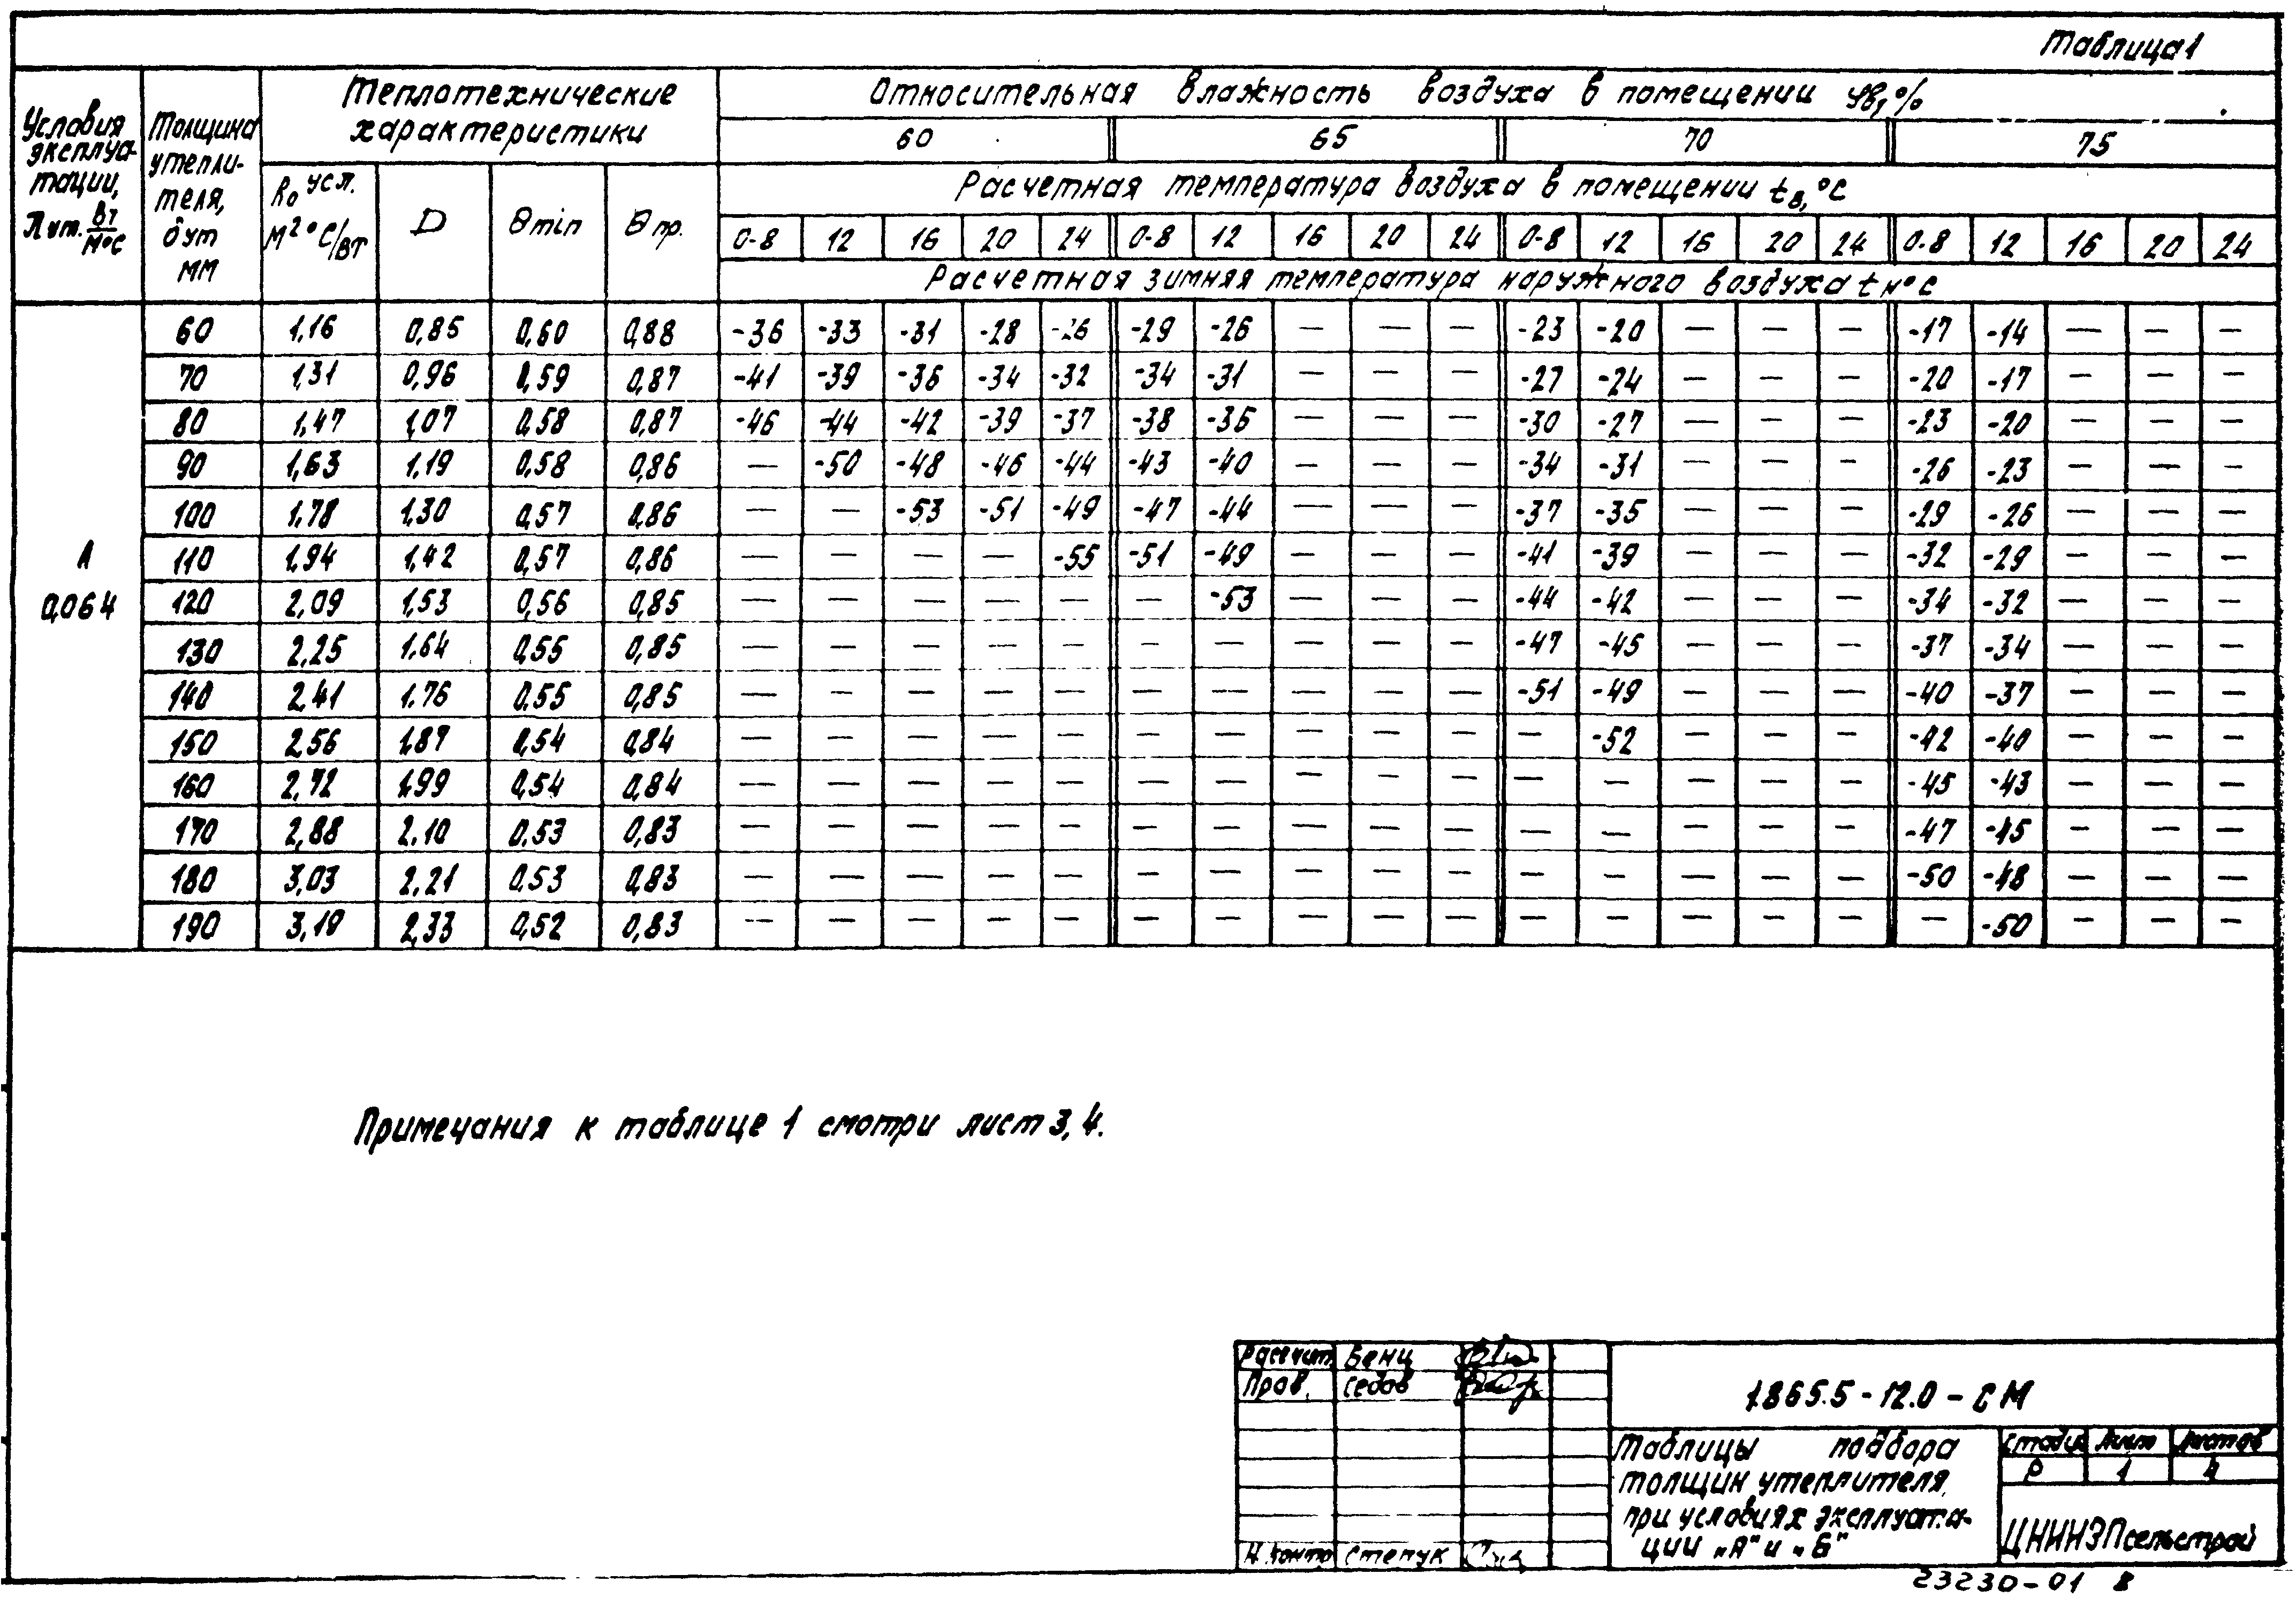 Таблица 1
Условия эксплуа-тации, λут. Вт/м°С | Толщина утепли-теля, δут мм | Теплотехнические характеристики | Относительная влажность воздуха в помещении φв, %
60 | 65 | 70 | 75
R₀усл. м²°С/Вт | D | θmin | θпр. | Расчетная температура воздуха в помещении tв, °С
0-8 | 12 | 16 | 20 | 24 | 0-8 | 12 | 16 | 20 | 24 | 0-8 | 12 | 16 | 20 | 24 | 0-8 | 12 | 16 | 20 | 24
Расчетная зимняя температура наружного воздуха tн°С
А 0,064
60 | 1,16 | 0,85 | 0,60 | 0,88 | -36 | -33 | -31 | -28 | -26 | -29 | -26 | — | — | — | -23 | -20 | — | — | — | -17 | -14 | — | — | —
70 | 1,31 | 0,96 | 0,59 | 0,87 | -41 | -39 | -36 | -34 | -32 | -34 | -31 | — | — | — | -27 | -24 | — | — | — | -20 | -17 | — | — | —
80 | 1,47 | 1,07 | 0,58 | 0,87 | -46 | -44 | -42 | -39 | -37 | -38 | -36 | — | — | — | -30 | -27 | — | — | — | -23 | -20 | — | — | —
90 | 1,63 | 1,19 | 0,58 | 0,86 | — | -50 | -48 | -46 | -44 | -43 | -40 | — | — | — | -34 | -31 | — | — | — | -26 | -23 | — | — | —
100 | 1,78 | 1,30 | 0,57 | 0,86 | — | — | -53 | -51 | -49 | -47 | -44 | — | — | — | -37 | -35 | — | — | — | -29 | -26 | — | — | —
110 | 1,94 | 1,42 | 0,57 | 0,86 | — | — | — | — | -55 | -51 | -49 | — | — | — | -41 | -39 | — | — | — | -32 | -29 | — | — | —
120 | 2,09 | 1,53 | 0,56 | 0,85 | — | — | — | — | — | — | -53 | — | — | — | -44 | -42 | — | — | — | -34 | -32 | — | — | —
130 | 2,25 | 1,64 | 0,55 | 0,85 | — | — | — | — | — | — | — | — | — | — | -47 | -45 | — | — | — | -37 | -34 | — | — | —
140 | 2,41 | 1.76 | 0.55 | 0,85 | — | — | — | — | — | — | — | — | — | — | -51 | -49 | — | — | — | -40 | -37 | — | — | —
150 | 2,56 | 1,87 | 0,54 | 0,84 | — | — | — | — | — | — | — | — | — | — | — | -52 | — | — | — | -42 | -40 | — | — | —
160 | 2,72 | 1,99 | 0,54 | 0,84 | — | — | — | — | — | — | — | — | — | — | — | — | — | — | — | -45 | -43 | — | — | —
170 | 2,88 | 2.10 | 0.53 | 0,83 | — | — | — | — | — | — | — | — | — | — | — | — | — | — | — | -47 | -45 | — | — | —
180 | 3,03 | 2,21 | 0,53 | 0,83 | — | — | — | — | — | — | — | — | — | — | — | — | — | — | — | -50 | -48 | — | — | —
190 | 3,19 | 2,33 | 0,52 | 0,83 | — | — | — | — | — | — | — | — | — | — | — | — | — | — | — | — | -50 | — | — | —
Примечания к таблице 1 смотри лист 3, 4.
Рассчит. Бенц
Пров. Седов
Н.контр Степук
1.865.5-12.0-СМ
Таблицы подбора
толщин утеплителя
при условиях эксплуата-
ции „А" и „Б"
Стадия | Лист | Листов
Р | 1 | 4
ЦНИИЭПсельстрой
23230-01 8